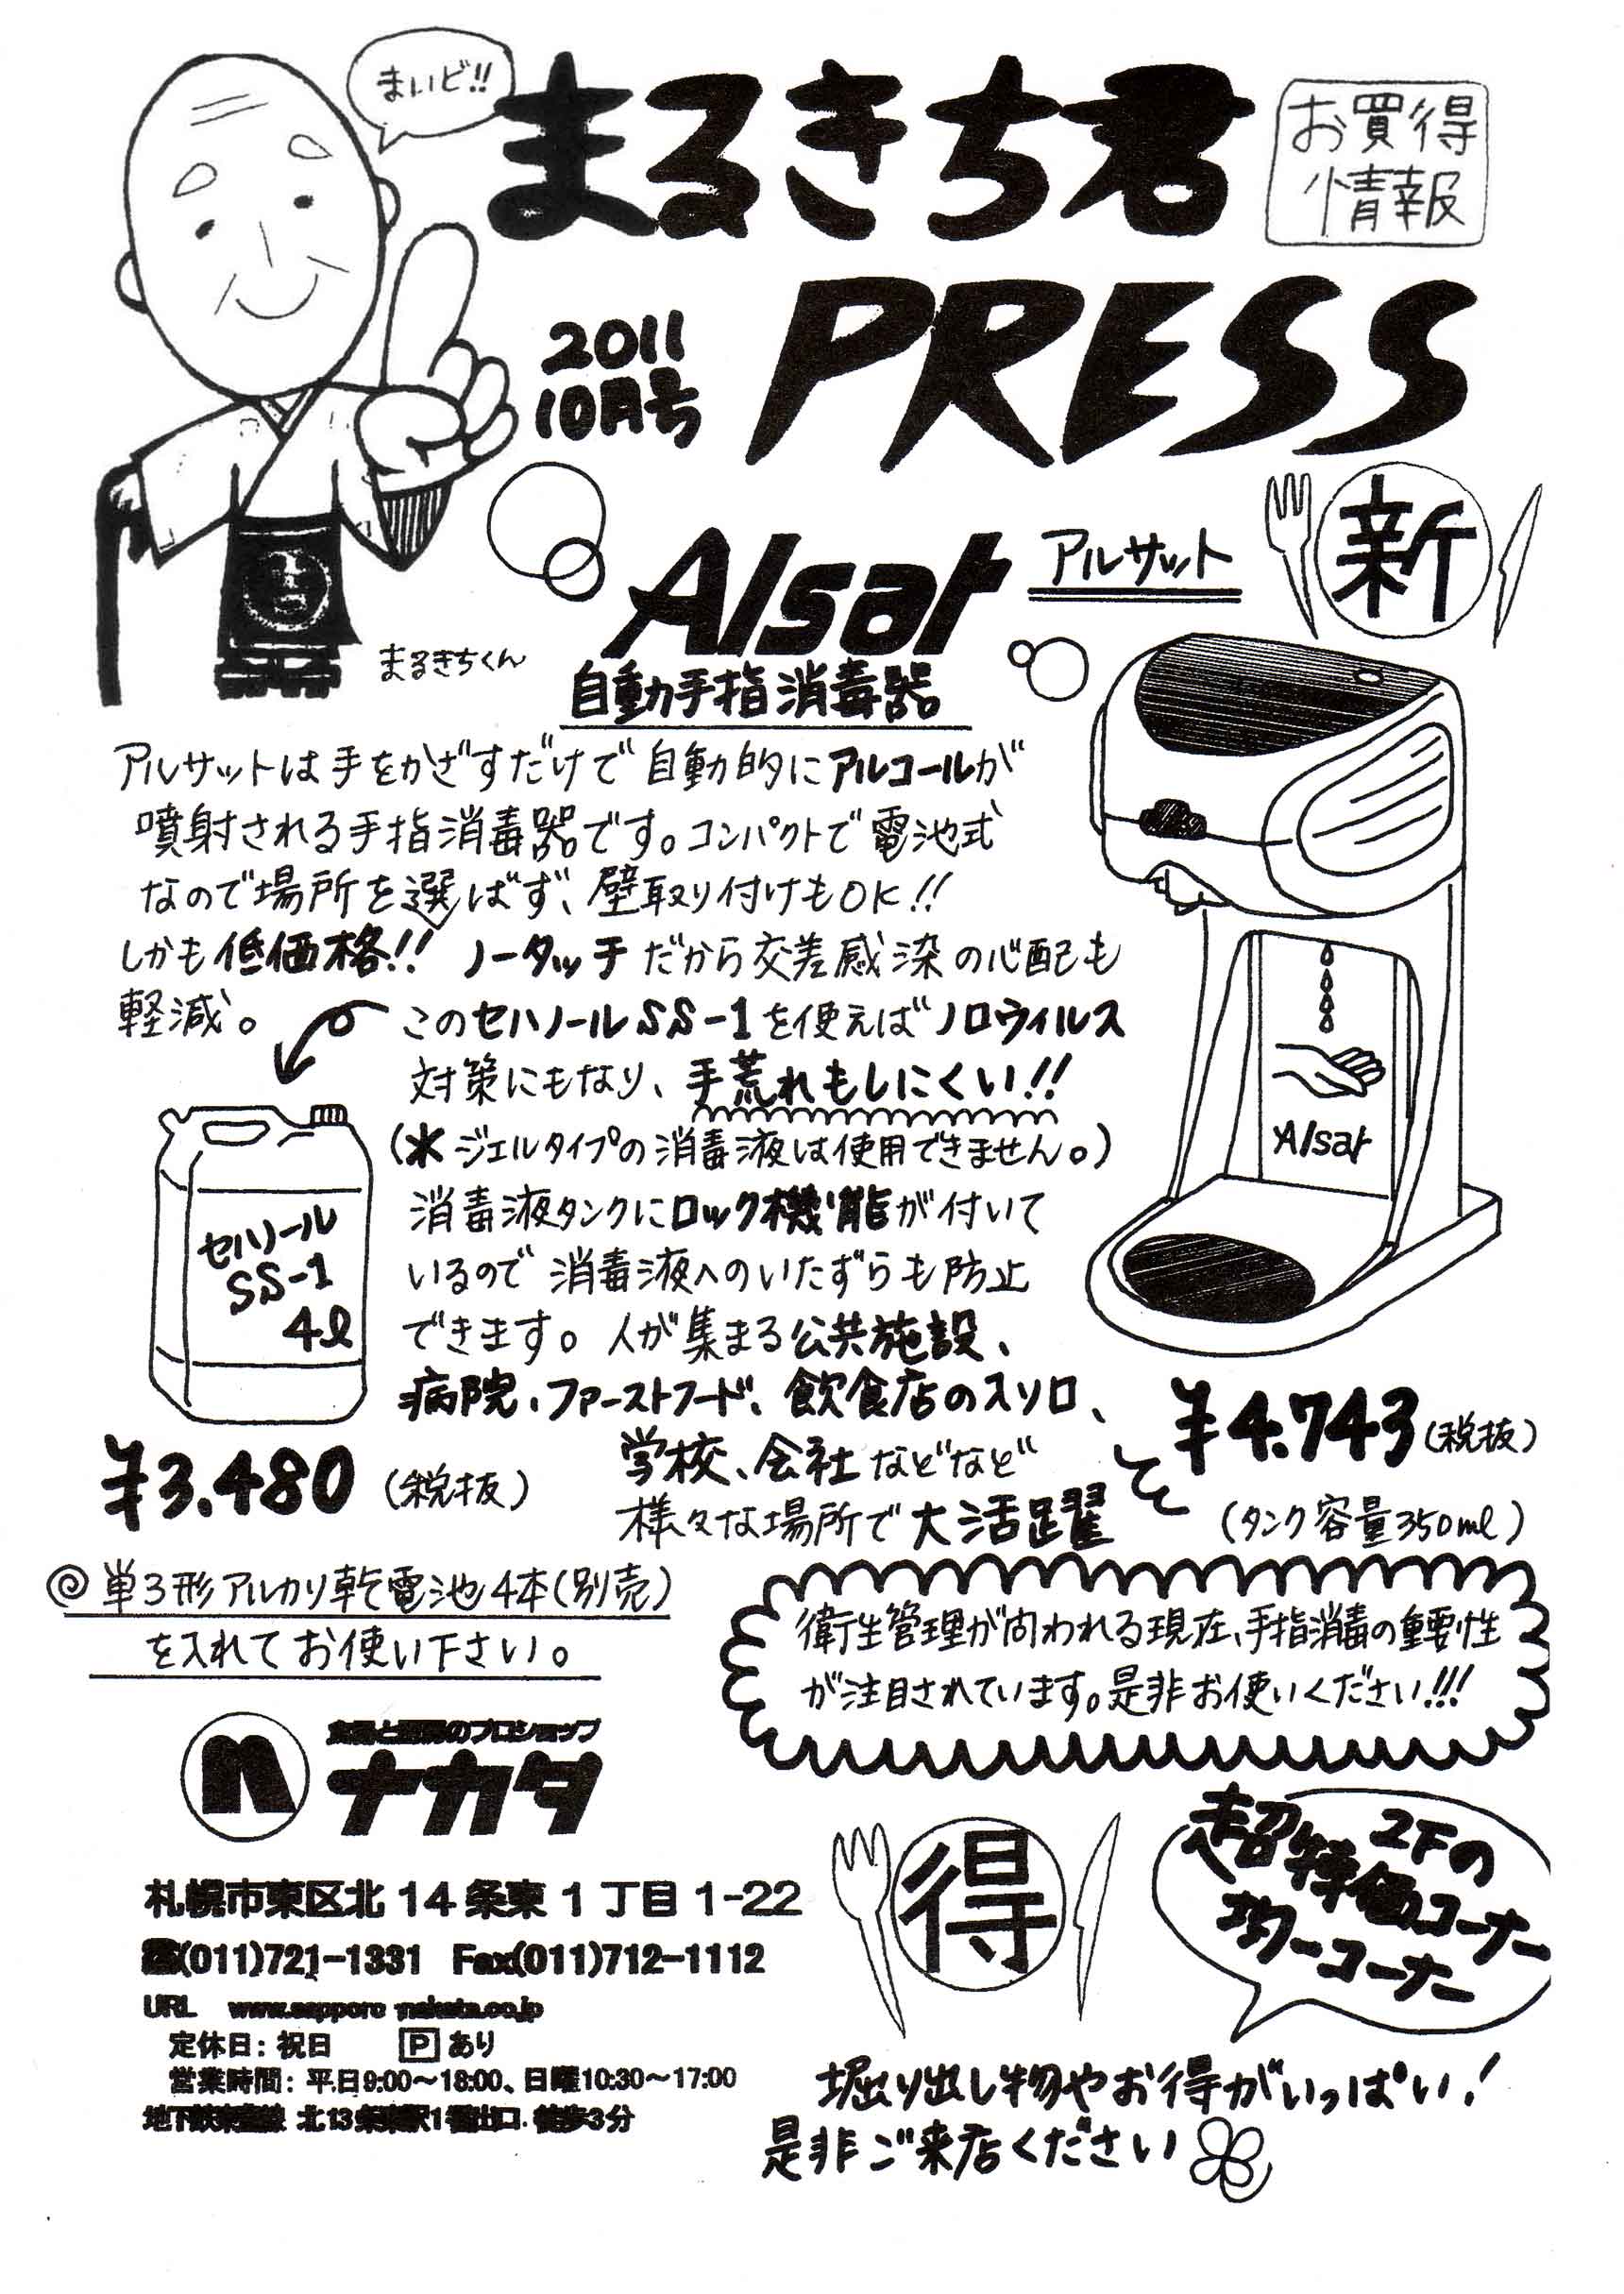 まいど!!
まるきち君
お買得
情報
PRESS
2011
10月号
まるきちくん
新
Alsat アルサット
自動手指消毒器
アルサットは手をかざすだけで自動的にアルコールが
噴射される手指消毒器です。コンパクトで電池式
なので場所を選ばず、壁取り付けもOK!!
しかも低価格!! ノータッチだから交差感染の心配も
軽減。
このセハノールSS-1を使えばノロウィルス
対策にもなり、手荒れもしにくい!!
(※ジェルタイプの消毒液は使用できません。)
消毒液タンクにロック機能が付いて
いるので消毒液へのいたずらも防止
できます。人が集まる公共施設、
病院、ファーストフード、飲食店のスソロ、
学校、会社などなど
様々な場所で大活躍
Alsat
セハノール
SS-1
4ℓ
¥3.480(税抜)
¥4.743(税抜)
(タンク容量350ml)
◎単3形アルカリ乾電池4本(別売)
を入れてお使い下さい。
衛生管理が問われる現在、手指消毒の重要性
が注目されています。是非お使いください!!!
食器と厨房のプロショップ
ナカタ
札幌市東区北14条東1丁目1-22
(011)721-1331 Fax(011)712-1112
URL www.sapporo-nakata.co.jp
定休日:祝日 Pあり
営業時間:平日9:00～18:00、日曜10:30～17:00
地下鉄東豊線 北13条東駅1番出口 徒歩3分
得
2Fの
超特価コーナー
均一コーナー
堀り出し物やお得がいっぱい!
是非ご来店ください